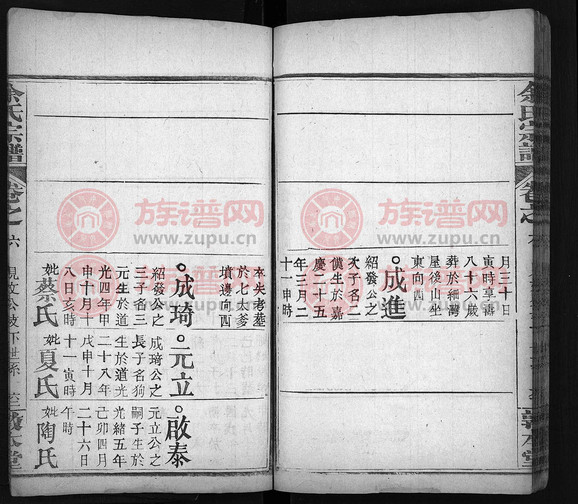 余氏宗譜
卷之
月三十日
寅時享壽
八十六歲
葬於細灣
屋後山坐
東向西
成進
紹發公之
次子名二
儀生於嘉
慶二十五
年三月二
十一申時
族谱网
www.zupu.cn
本失考葬
於七太爹
墳邊向西
成琦
紹發公之
三子名三
元生於道
光四年甲
申十月十
八日亥時
妣蔡氏
元立
成琦公之
長子名狗
生於道光
二十八年
戊申十月
十一寅時
妣夏氏
啟泰
元立公之
嗣子生於
光緒五年
己卯四月
二十六日
午時
妣陶氏
余氏宗譜
卷之六
見文公支下世系
敦本堂
族谱网
www.zupu.cn